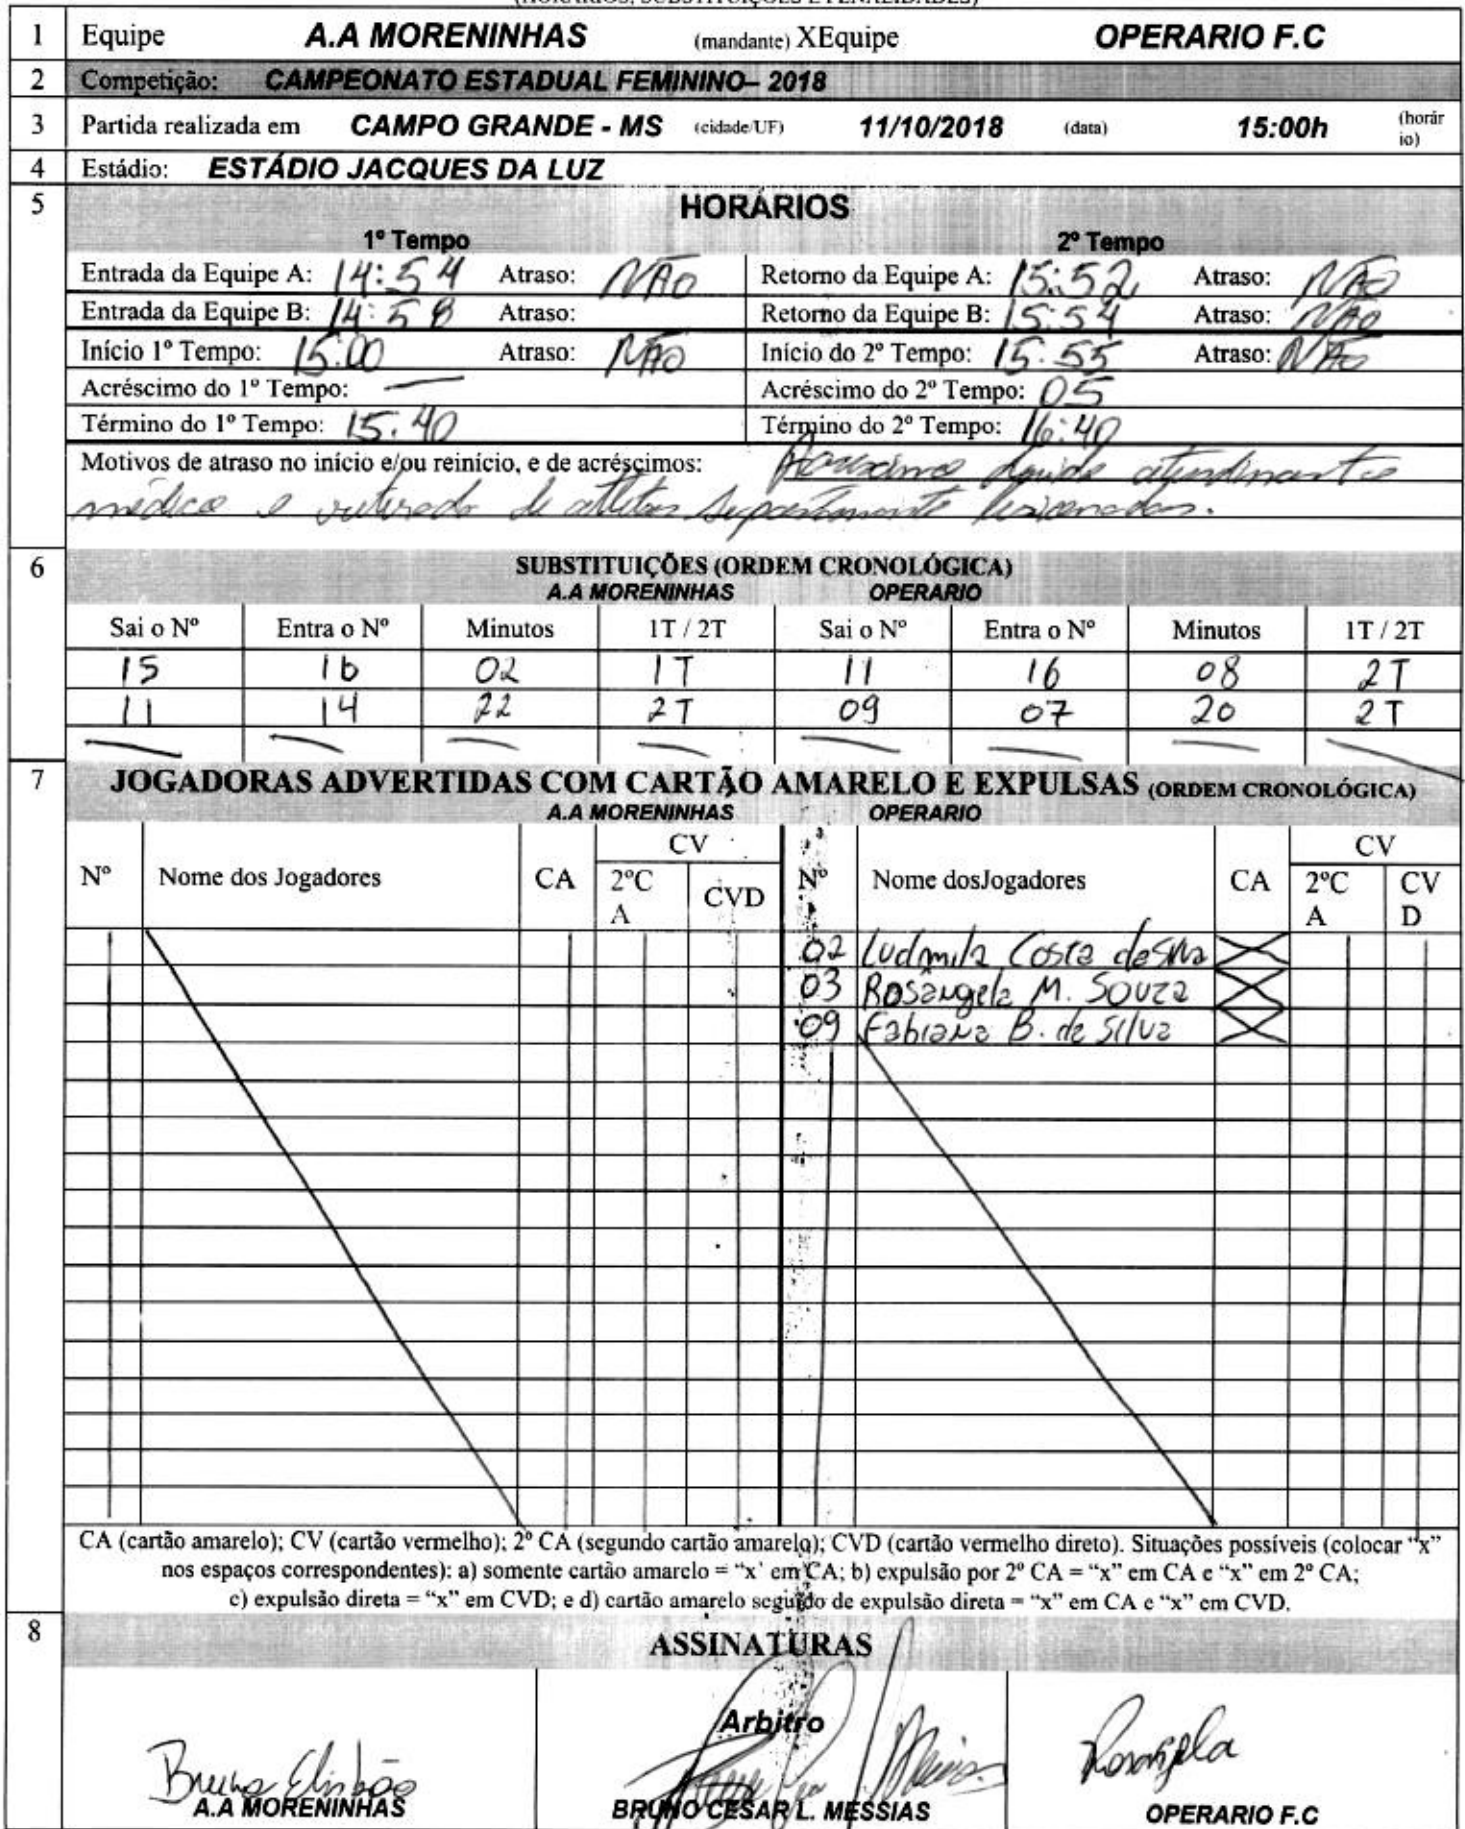 (HORÁRIOS, SUBSTITUIÇÕES E PENALIDADES)
1 Equipe A.A MORENINHAS (mandante) XEquipe OPERARIO F.C
2 Competição: CAMPEONATO ESTADUAL FEMININO– 2018
3 Partida realizada em CAMPO GRANDE - MS (cidade/UF) 11/10/2018 (data) 15:00h (horár
io)
4 Estádio: ESTÁDIO JACQUES DA LUZ
5 HORÁRIOS
1º Tempo 2º Tempo
Entrada da Equipe A: 14:54 Atraso: NÃO Retorno da Equipe A: 15:52 Atraso: NÃO
Entrada da Equipe B: 14:58 Atraso: Retorno da Equipe B: 15:54 Atraso: NÃO
Início 1º Tempo: 15:00 Atraso: NÃO Início do 2º Tempo: 15:55 Atraso: NÃO
Acréscimo do 1º Tempo: — Acréscimo do 2º Tempo: 05
Término do 1º Tempo: 15:40 Término do 2º Tempo: 16:40
Motivos de atraso no início e/ou reinício, e de acréscimos: atendimento
médico e retirada de atletas supostamente lesionadas.
6 SUBSTITUIÇÕES (ORDEM CRONOLÓGICA)
A.A MORENINHAS OPERARIO
Sai o Nº Entra o Nº Minutos 1T / 2T Sai o Nº Entra o Nº Minutos 1T / 2T
15 16 02 1T 11 16 08 2T
11 14 22 2T 09 07 20 2T
— — — — — — — —
7 JOGADORAS ADVERTIDAS COM CARTÃO AMARELO E EXPULSAS (ORDEM CRONOLÓGICA)
A.A MORENINHAS OPERARIO
CV CV
Nº Nome dos Jogadores CA 2ºC CVD Nº Nome dosJogadores CA 2ºC CV
A A D
02 Ludmila Costa da Silva X
03 Rosângela M. Souza X
09 Fabiana B. da Silva X
CA (cartão amarelo); CV (cartão vermelho); 2º CA (segundo cartão amarelo); CVD (cartão vermelho direto). Situações possíveis (colocar “x”
nos espaços correspondentes): a) somente cartão amarelo = “x’ em CA; b) expulsão por 2º CA = “x” em CA e “x” em 2º CA;
c) expulsão direta = “x” em CVD; e d) cartão amarelo seguido de expulsão direta = “x” em CA e “x” em CVD.
8 ASSINATURAS
Arbitro
Rosangela
A.A MORENINHAS BRUNO CESAR L. MESSIAS OPERARIO F.C